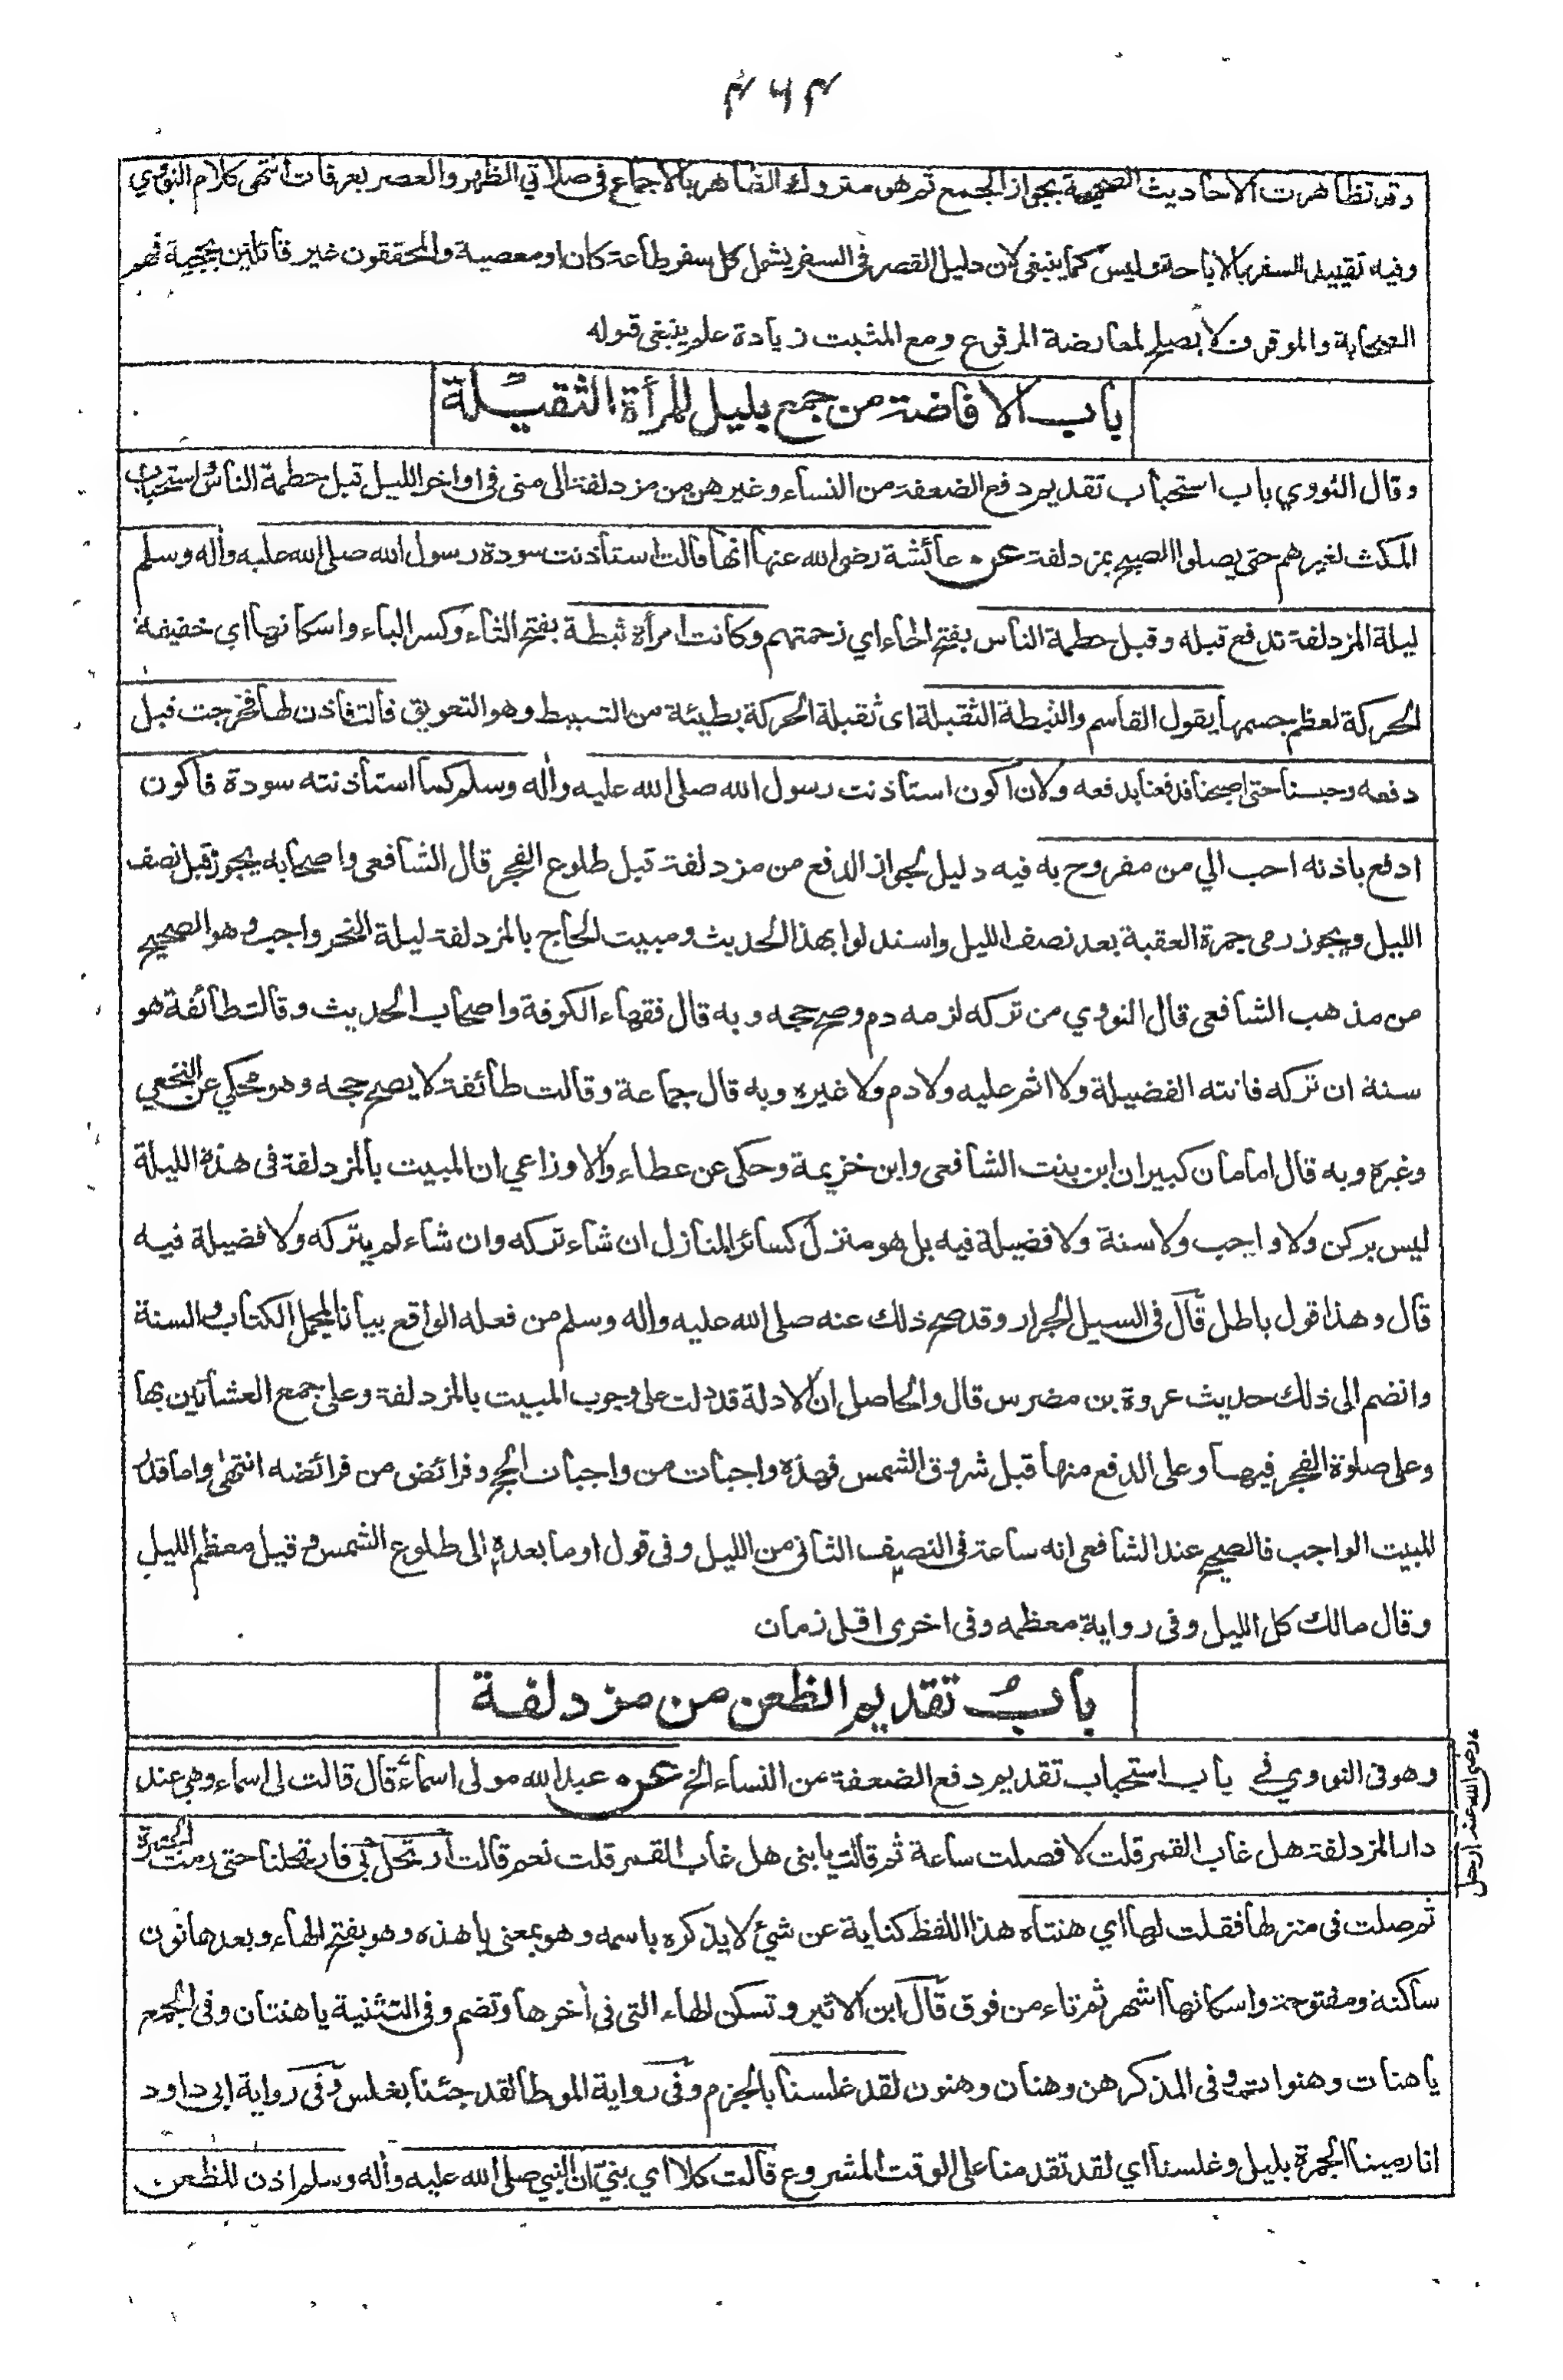 ٤٦٤
وقد تظاهرت الاحاديث الصحيحة بجواز الجمع ثم هو متروك الظاهر بالاجماع فى صلاتي الظهر والعصر بعرفات انتهى كلام النووي
وفيه تقييد السفر بالاباحة وليس كما ينبغى لان دليل القصر فى السفر يشمل كل سفر طاعة كان او معصية والمحققون غير قائلين بحجية فهم
الصحابة والموقوف لا يصلح لمعارضة المرفوع ومع المثبت زيادة علم ينبغى قوله
باب الافاضة من جمع بليل للمرأة الثقيلة
وقال النووي باب استحباب تقديم دفع الضعفة من النساء وغيرهن من مزدلفة الى منى فى اواخر الليل قبل حطمة الناس واستحباب
المكث لغيرهم حتى يصلوا الصبح بمزدلفة عن عائشة رضى الله عنها انها قالت استأذنت سودة رسول الله صلى الله عليه وأله وسلم
ليلة المزدلفة تدفع قبله وقبل حطمة الناس بفتح الحاء اي زحمتهم وكانت امرأة ثبطة بفتح الثاء وكسر الباء واسكانها اي خفيفة
الحركة لعظم جسمها يقول القاسم والثبطة الثقيلة اى ثقيلة الحركة بطيئة من التسبيط وهو التعويق قالت فاذن لها فخرجت قبل
دفعه وحبسنا حتى اصبحنا فدفعنا بدفعه ولان اكون استاذنت رسول الله صلى الله عليه وأله وسلم كما استأذنته سودة فاكون
ادفع باذنه احب الي من مفروح به فيه دليل لجواز الدفع من مزدلفة قبل طلوع الفجر قال الشافعى واصحابه يجوز قبل نصف
الليل ويجوز رمى جمرة العقبة بعد نصف الليل واستدلوا بهذا الحديث ومبيت الحاج بالمزدلفة ليلة النحر واجب وهو الصحيح
من مذهب الشافعى قال النووي من تركه لزمه دم وصح حجه وبه قال فقهاء الكوفة واصحاب الحديث وقالت طائفة هو
سنة ان تركه فاتته الفضيلة ولا اثم عليه ولا دم ولا غيره وبه قال جماعة وقالت طائفة لا يصح حجه وهو محكي عن النخعي
وغيره وبه قال امامان كبيران ابن بنت الشافعى وابن خزيمة وحكى عن عطاء والاوزاعي ان المبيت بالمزدلفة فى هذه الليلة
ليس بركن ولا واجب ولا سنة ولا فضيلة فيه بل هو منزل كسائر المنازل ان شاء تركه وان شاء لم يتركه ولا فضيلة فيه
قال وهذا قول باطل قال فى السيل الجرار وقد صح ذلك عنه صلى الله عليه واله وسلم من فعله الواقع بيانا لمجمل الكتاب والسنة
وانضم الى ذلك حديث عروة بن مضرس قال والحاصل ان الادلة قد دلت على وجوب المبيت بالمزدلفة وعلى جمع العشائين بها
وعلى صلوة الفجر فيها وعلى الدفع منها قبل شروق الشمس فهذه واجبات من واجبات الحج وفرائض من فرائضه انتهى واما قدر
المبيت الواجب فالصحيح عند الشافعى انه ساعة فى النصف الثانى من الليل وفى قول او ما بعده الى طلوع الشمس وقيل معظم الليل
وقال مالك كل الليل وفى رواية معظمه وفى اخرى اقل زمان
باب تقديم الظعن من مزدلفة
وهو فى النووي في باب استحباب تقديم دفع الضعفة من النساء الخ عن عبد الله مولى اسماء قال قالت لى اسماء وهى عند
دار المزدلفة هل غاب القمر قلت لا فصلت ساعة ثم قالت يا بنى هل غاب القمر قلت نعم قالت ارتحل بي فارتحلنا حتى رمت الجمرة
ثم صلت فى منزلها فقلت لها اي هنتاه هذا اللفظ كناية عن شئ لا يذكره باسمه وهو بمعنى يا هذه وهو بفتح الهاء وبعدها نون
ساكنة ومفتوحة واسكانها اشهر ثم تاء من فوق قال ابن الاثير وتسكن الهاء التى فى أخرها وتضم وفى التثنية يا هنتان وفى الجمع
يا هنات وهنوات وفى المذكر هن وهنان وهنون لقد غلسنا بالجزم وفى رواية الموطا لقد جئنا بغلس وفى رواية ابى داود
انا رمينا الجمرة بليل وغلسنا اي لقد تقدمنا على الوقت المشروع قالت كلا اي بنيّ ان النبي صلى الله عليه وأله وسلم اذن للظعن